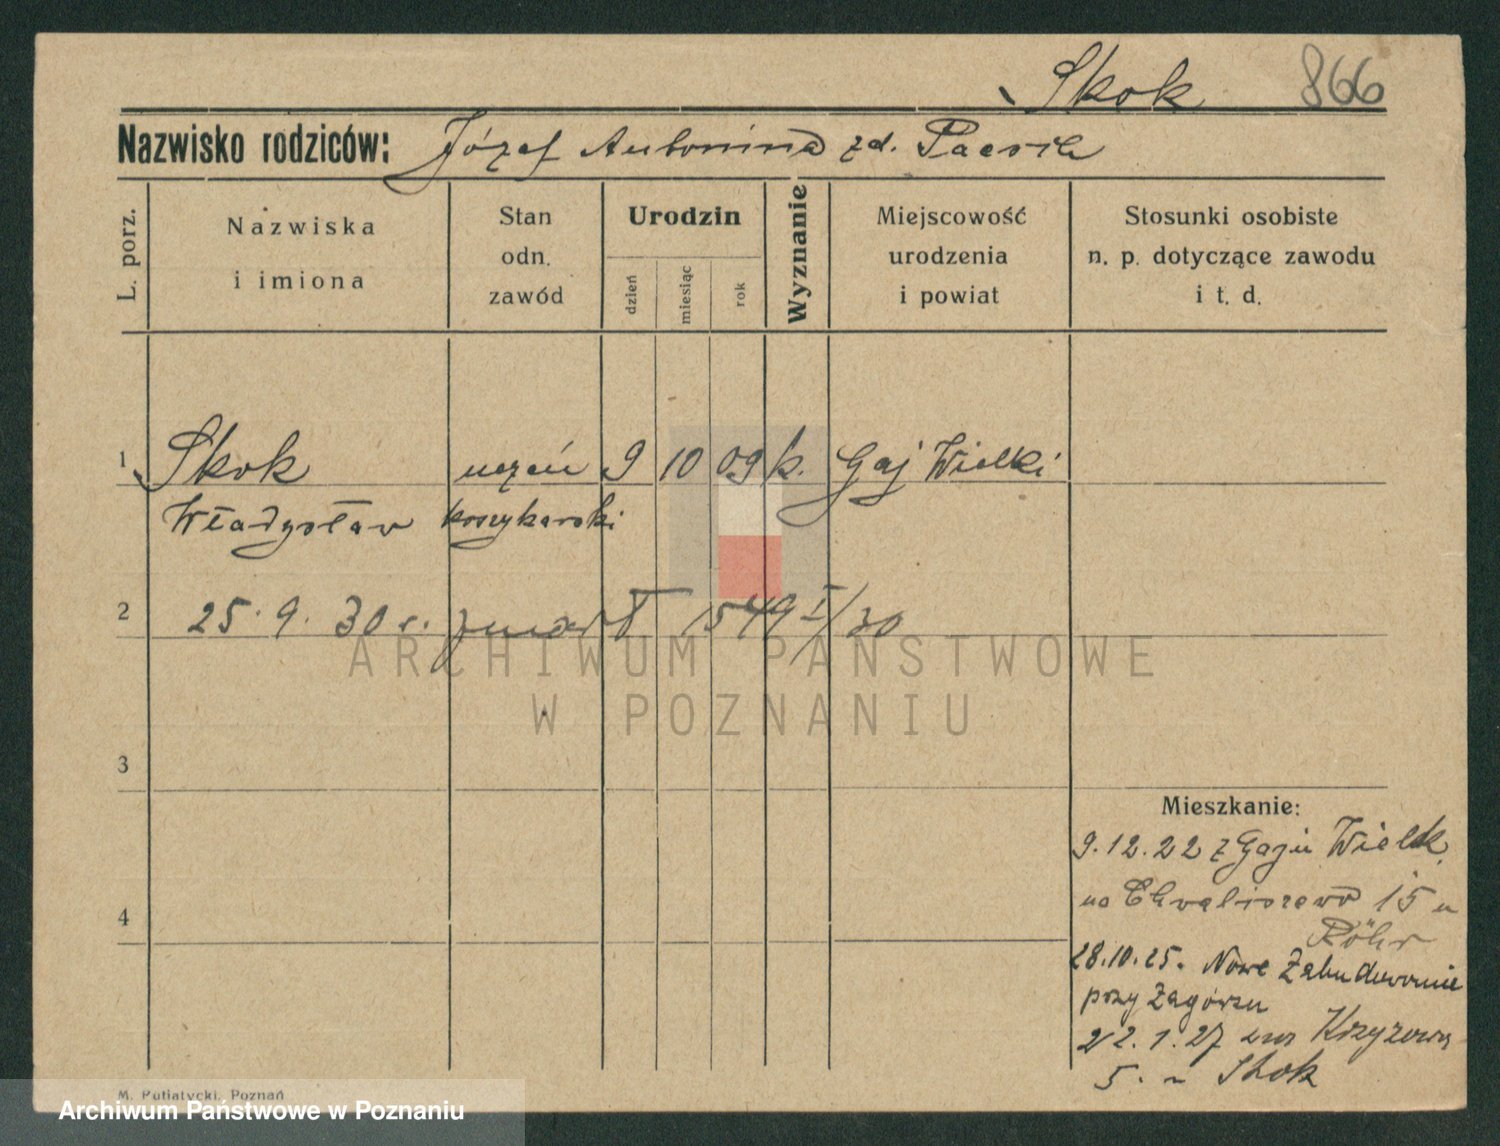 Skok 866
Nazwisko rodziców: Józef Antonina zd.
L. porz.
Nazwiska
i imiona
Stan
odn.
zawód
Urodzin
dzień
miesiąc
rok
Wyznanie
Miejscowość
urodzenia
i powiat
Stosunki osobiste
n. p. dotyczące zawodu
i t. d.
1 Skok uczeń 9 10 09 k. Gaj Wielki
Władysław koszykarski
2 25. 9. 30 r. zmarł 1549 I/30
ARCHIWUM PAŃSTWOWE
W POZNANIU
3
Mieszkanie:
9.12.22 z Gaju Wielk.
na Chwaliszewo 15 u
Röhr
4
28.10.25. Nowe Zabudowanie
przy Zagórzu
22.1.27 Krzyżowa
5. u Skok
M. Putiatycki, Poznań
Archiwum Państwowe w Poznaniu